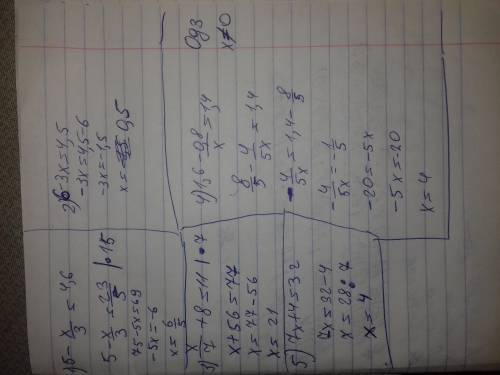 1) 5 - x/3 = 4,6
5 - x/3 = 23/5 | · 15
75 - 5x = 69
-5x = -6
x = 6/5
2) 6 - 3x = 4,5
-3x = 4,5 - 6
-3x = -1,5
x = 0,5
3) x/7 + 8 = 11 | · 7
x + 56 = 77
x = 77 - 56
x = 21
4) 1,6 - 0,8/x = 1,4
8/5 - 4/5x = 1,4
-4/5x = 1,4 - 8/5
-4/5x = -1/5
-20 = -5x
-5x = -20
x = 4
Одз
x ≠ 0
5) 7x + 4 = 32
7x = 32 - 4
x = 28 : 7
x = 4